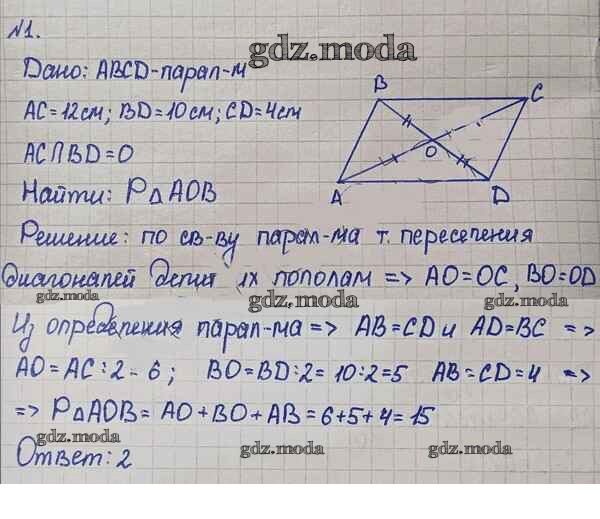 №1.
gdz.moda
Дано: ABCD-парал-м
AC=12см; BD=10см; CD=4см
AC∩BD=O
Найти: P△AOB
B
C
O
A
D
Решение: по св-ву парал-ма т. пересечения
диагоналей делит их пополам => AO=OC, BO=OD
gdz.moda gdz.moda gdz.moda
Из определения парал-ма => AB=CD и AD=BC =>
AO=AC:2=6; BO=BD:2=10:2=5 AB=CD=4 =>
=> P△AOB= AO+BO+AB=6+5+4=15
gdz.moda gdz.moda gdz.moda
Ответ: 2